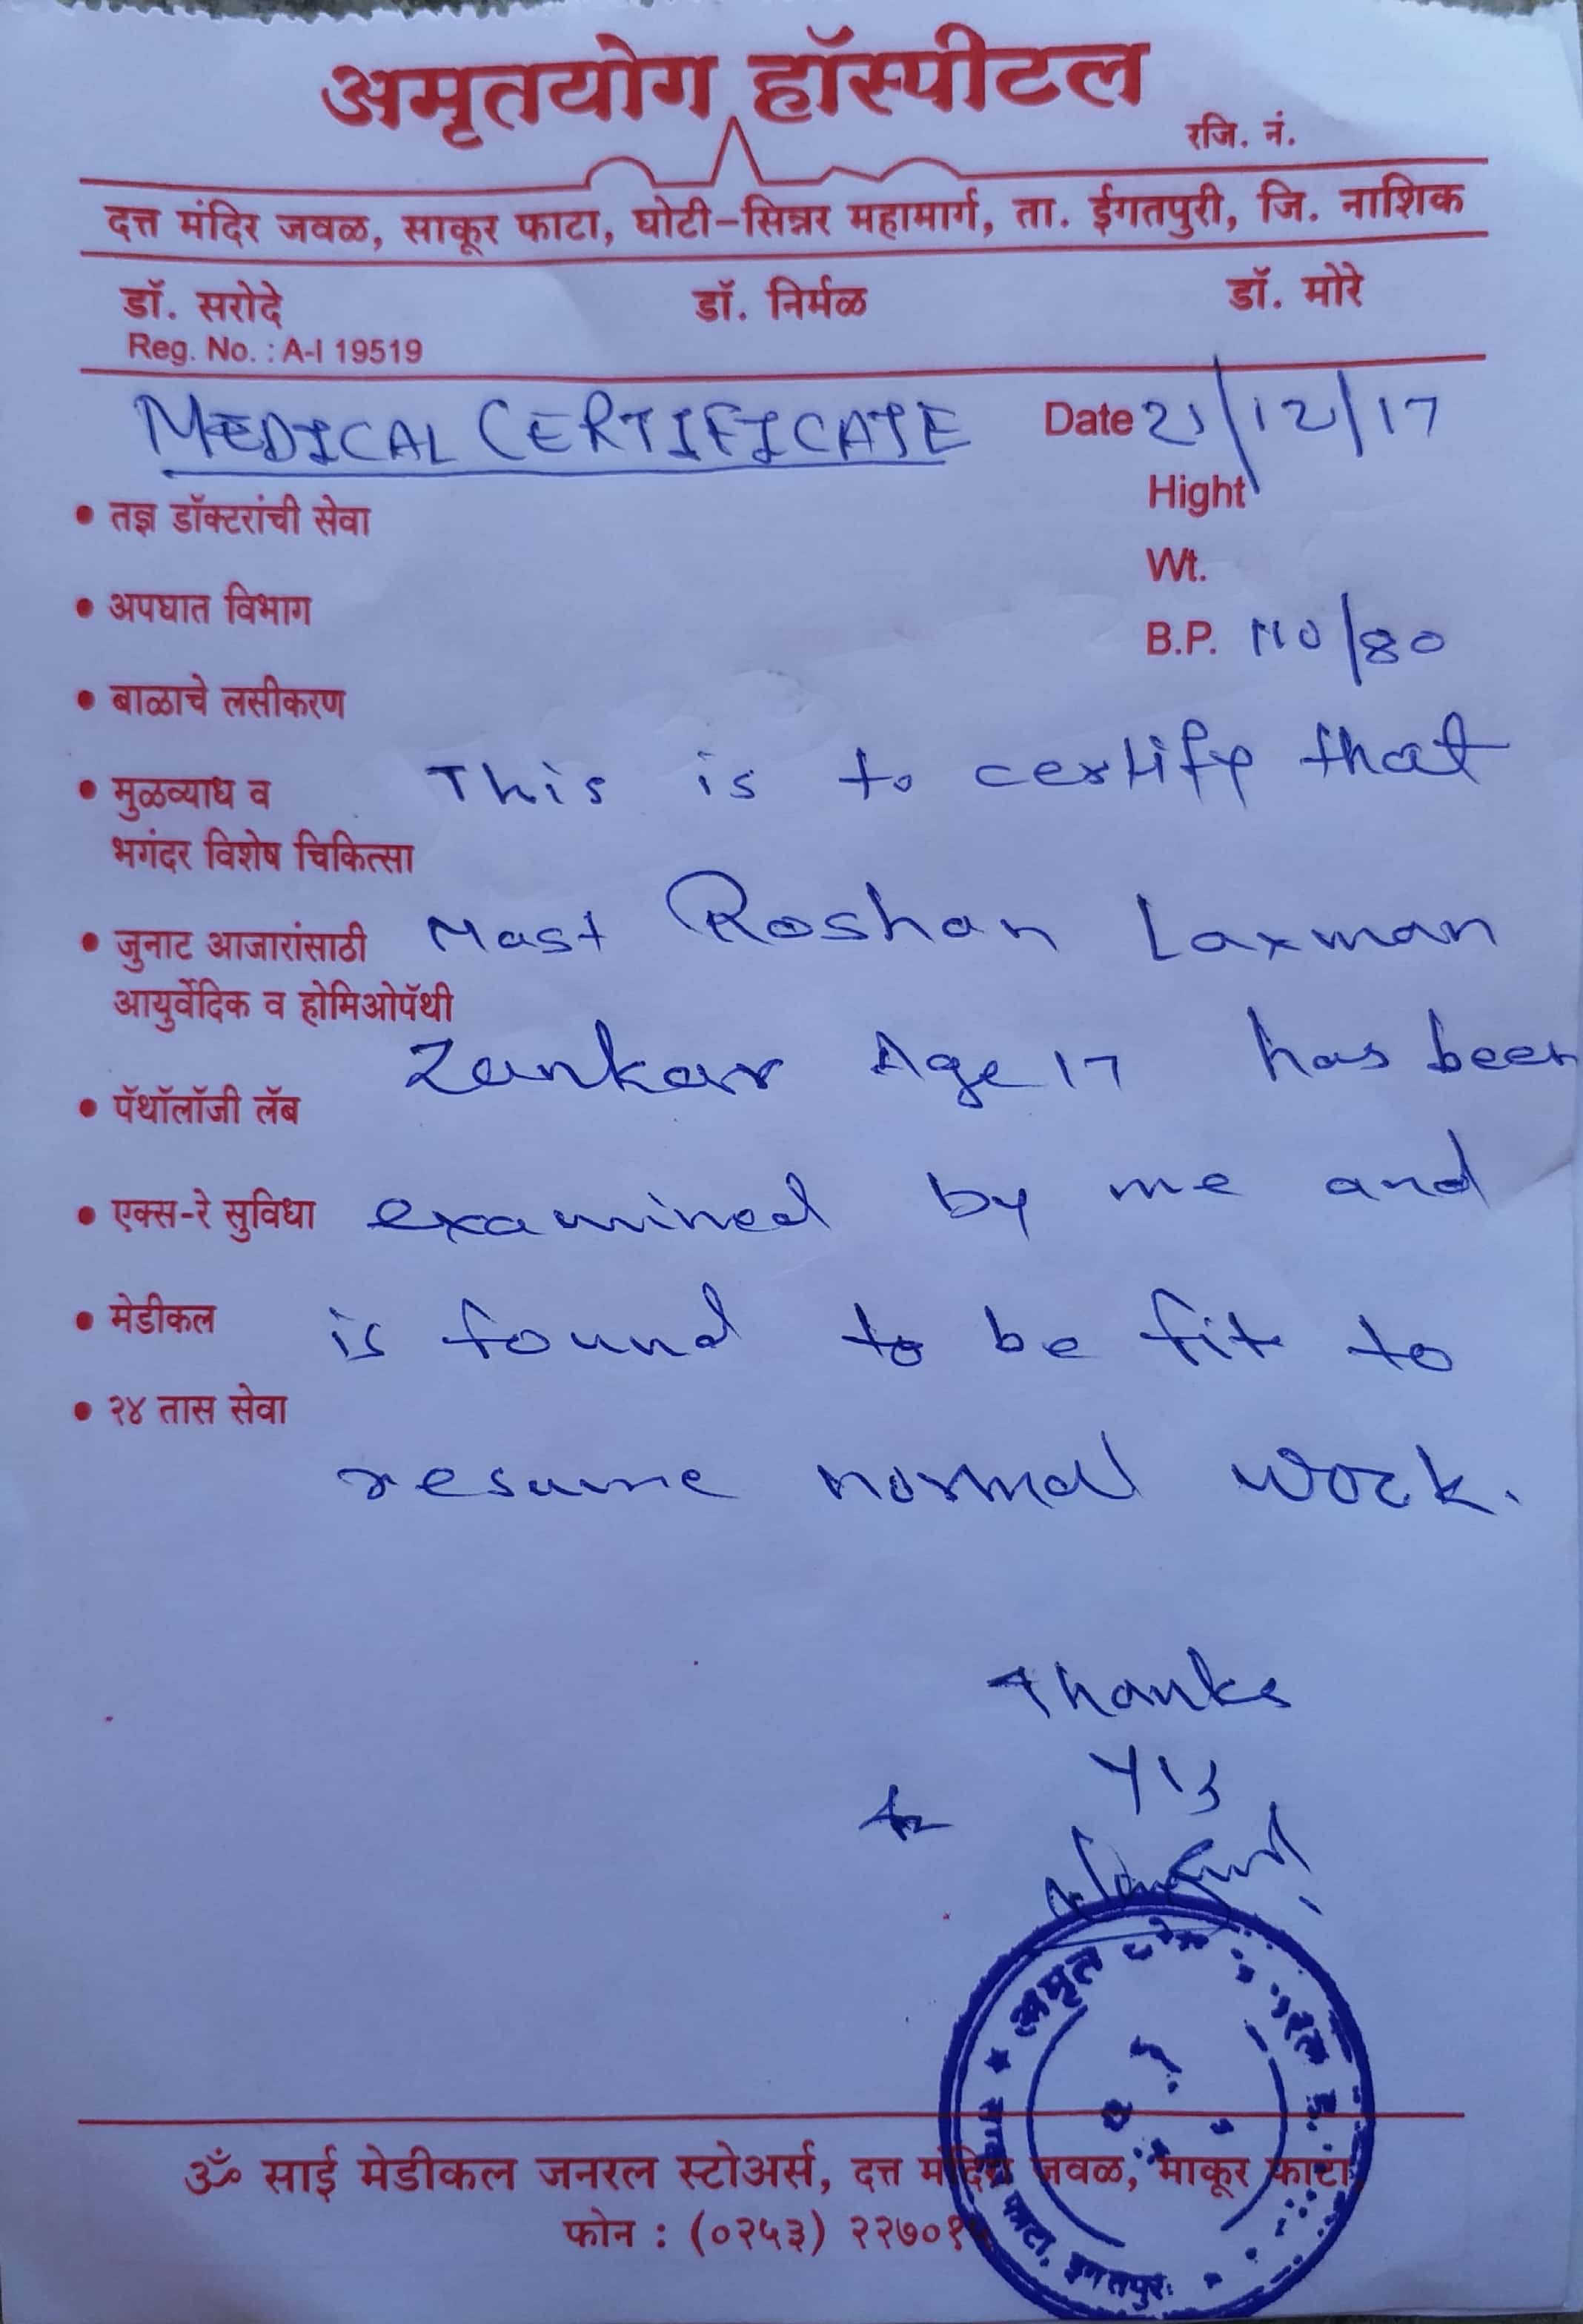 अमृतयोग हॉस्पीटल
रजि. नं.
दत्त मंदिर जवळ, साकूर फाटा, घोटी-सिन्नर महामार्ग, ता. ईगतपुरी, जि. नाशिक
डॉ. सरोदे डॉ. निर्मळ डॉ. मोरे
Reg. No. : A-I 19519
MEDICAL CERTIFICATE Date 21/12/17
Hight
• तज्ञ डॉक्टरांची सेवा
Wt.
• अपघात विभाग
B.P. 110/80
• बाळाचे लसीकरण
• मुळव्याध व This is to certify that
भगंदर विशेष चिकित्सा
• जुनाट आजारांसाठी Mast Roshan Laxman
आयुर्वेदिक व होमिओपॅथी
Zankar Age 17 has been
• पॅथॉलॉजी लॅब
• एक्स-रे सुविधा examined by me and
• मेडीकल is found to be fit to
• २४ तास सेवा
resume normal work.
Thanks
अमृत
फाटा, इगतपुर
ॐ साई मेडीकल जनरल स्टोअर्स, दत्त मंदिर जवळ, साकूर फाटा
फोन : (०२५३) २२७०१